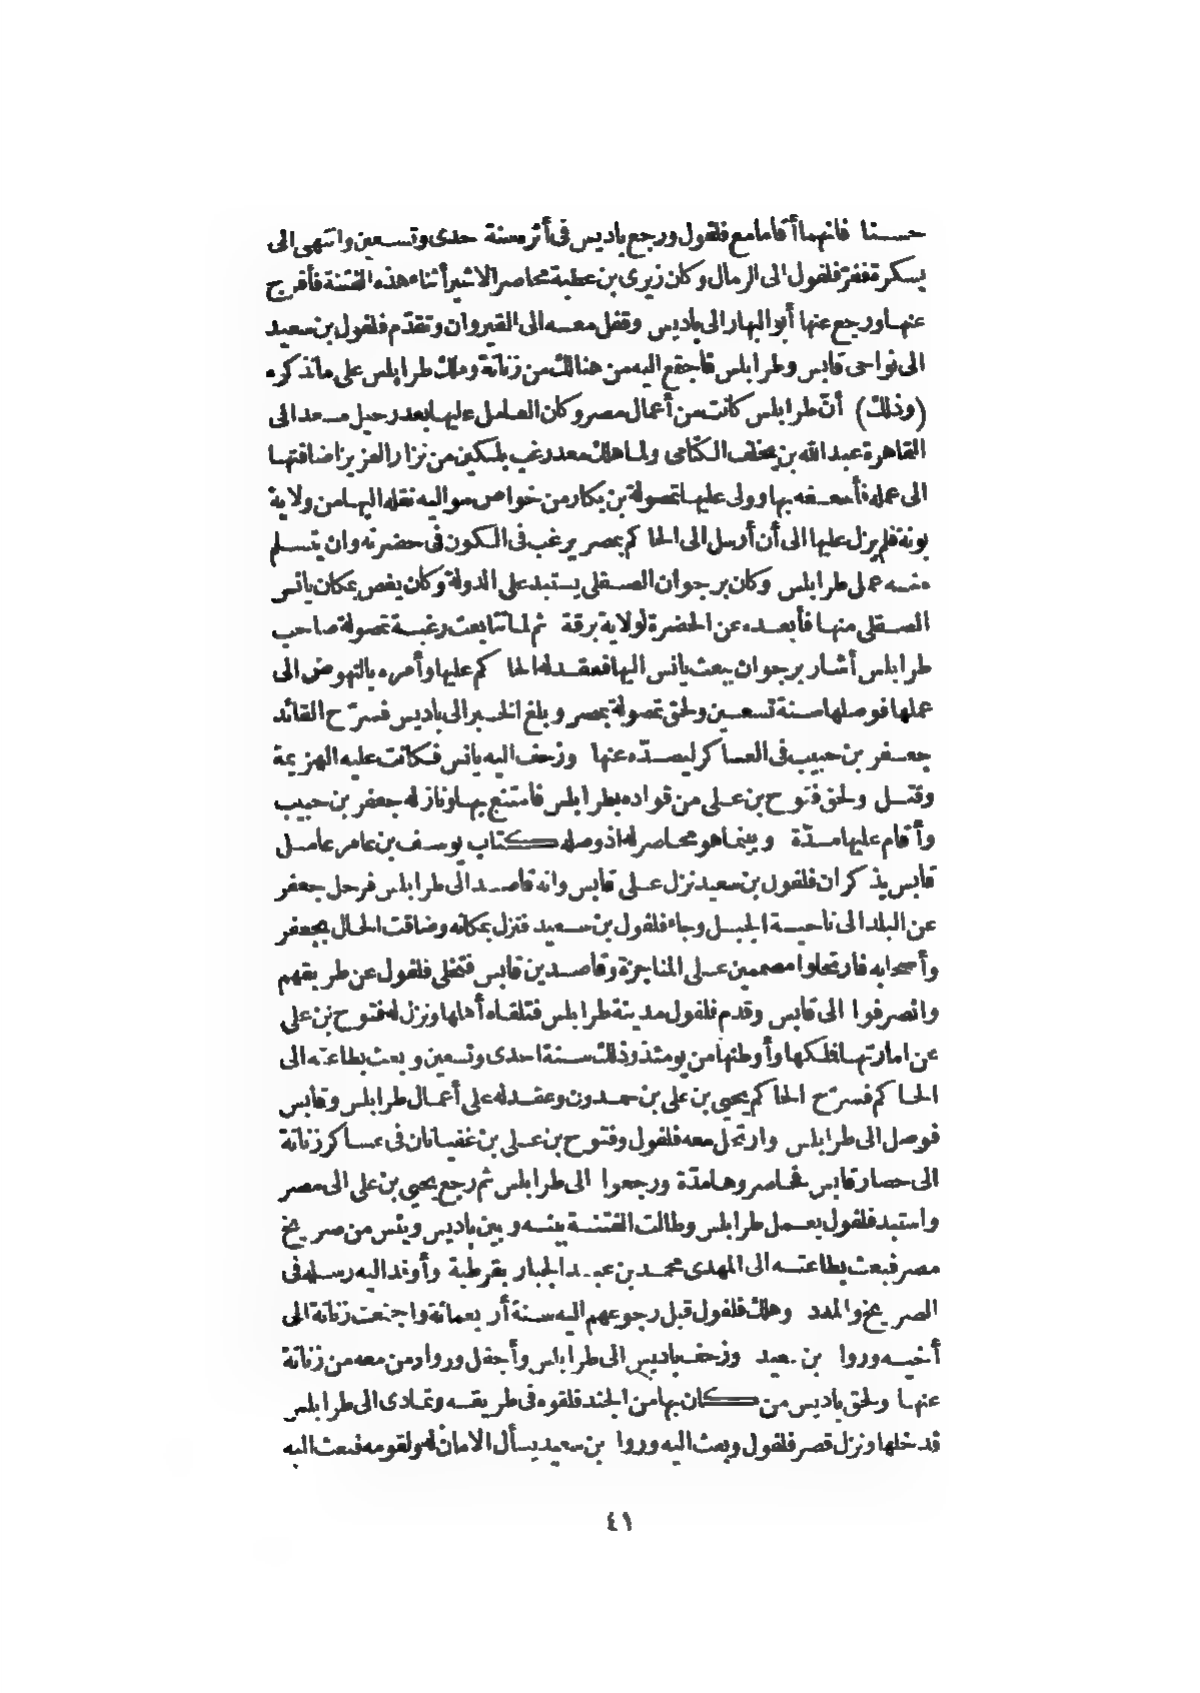 حسنا فانهما أقاما مع فلفول ورجع باديس فى أثر سنة احدى وتسعين وانتهى الى
بسكرة ففر فلفول الى الرمال وكان زيرى بن عطية محاصر الاشير أثناء هذه الفتنة فأفرج
عنها ورجع عنها أبو البهار الى باديس وقفل معه الى القيروان وتقدّم فلفول بن سعيد
الى نواحى قابس وطرابلس فاجتمع اليه من هنالك من زناتة وملك طرابلس على مانذكره
(وذلك) أنّ طرابلس كانت من أعمال مصر وكان العامل عليها بعد رحيل معد الى
القاهرة عبد الله بن يخلف الكتامى ولما هلك معد رغب بلكين من نزار العزيز اضافتها
الى عمله فأسعفه بها وولى عليها تمصولة بن بكار من خواص مواليه نقله اليها من ولاية
بونة فلم يزل عليها الى أن أرسل الى الحاكم بمصر يرغب فى الكون فى حضرته وان يتسلم
منه عمل طرابلس وكان برجوان الصقلى يستبد على الدولة وكان يغص بمكان يانس
الصقلى منها فأبعده عن الحضرة لولاية برقة ثم لما تتابعت رغبة تمصولة صاحب
طرابلس أشار برجوان ببعث يانس اليها فعقد له الحاكم عليها وأمره بالنهوض الى
عملها فوصلها سنة تسعين ولحق تمصولة بمصر وبلغ الخبر الى باديس فسرّح القائد
جعفر بن حبيب فى العساكر ليصدّه عنها وزحف اليه يانس فكانت عليه الهزيمة
وقتل ولحق فتوح بن على من قواده بطرابلس فامتنع بها ونازله جعفر بن حبيب
وأقام عليها مدّة وبينما هو محاصر له اذ وصله كتاب يوسف بن عامر عامل
قابس يذكر ان فلفول بن سعيد نزل على قابس وانه قاصد الى طرابلس فرحل جعفر
عن البلد الى ناحية الجبل وجاء فلفول بن سعيد فنزل بمكانه وضاقت الحال بجعفر
وأصحابه فارتحلوا مصممين على المناجزة وقاصدين قابس فتخلى فلفول عن طريقهم
وانصرفوا الى قابس وقدم فلفول مدينة طرابلس فتلقاه أهلها ونزل له فتوح بن على
عن امارتها فلكها وأوطنها من يومئذ وذلك سنة احدى وتسعين وبعث بطاعته الى
الحاكم فسرّح الحاكم يحيى بن على بن حمدون وعقد له على أعمال طرابلس وقابس
فوصل الى طرابلس وارتحل معه فلفول وفتوح بن على بن غفيانان فى عساكر زناتة
الى حصار قابس فحاصروها مدّة ورجعوا الى طرابلس ثم رجع يحيى بن على الى مصر
واستبد فلفول بعمل طرابلس وطالت الفتنة بينه وبين باديس ويئس من صريخ
مصر فبعث بطاعته الى المهدى محمد بن عبد الجبار بقرطبة وأوفد اليه رسله فى
الصريخ والمدد وهلك فلفول قبل رجوعهم اليه سنة أربعمائة واجتمعت زناتة الى
أخيه وروا بن سعيد وزحف باديس الى طرابلس وأجفل وروا ومن معه من زناتة
عنها ولحق باديس من كان بها من الجند فلقوه فى طريقه وتمادى الى طرابلس
فدخلها ونزل قصر فلفول وبعث اليه وروا بن سعيد يسأل الامان له ولقومه فبعث اليه
٤١